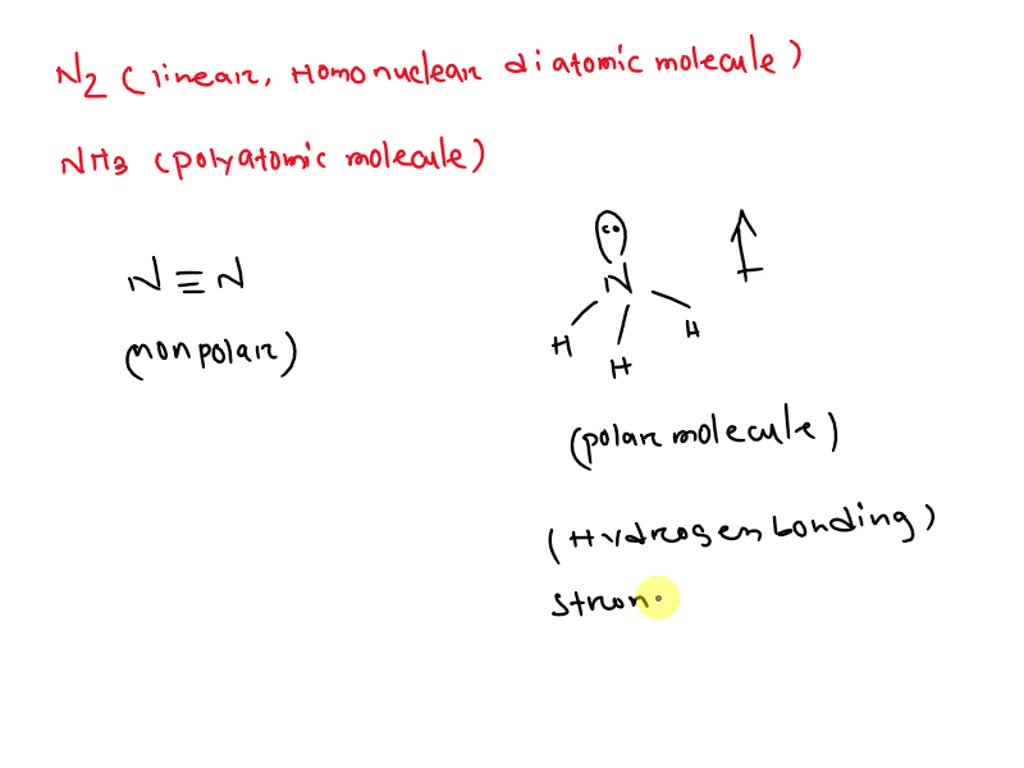 N2 (linear, Homonuclear diatomic molecule)
NH3 (polyatomic molecule)
N≡N
(nonpolar)
N
H H H
(polar molecule)
(Hydrogen bonding)
stron